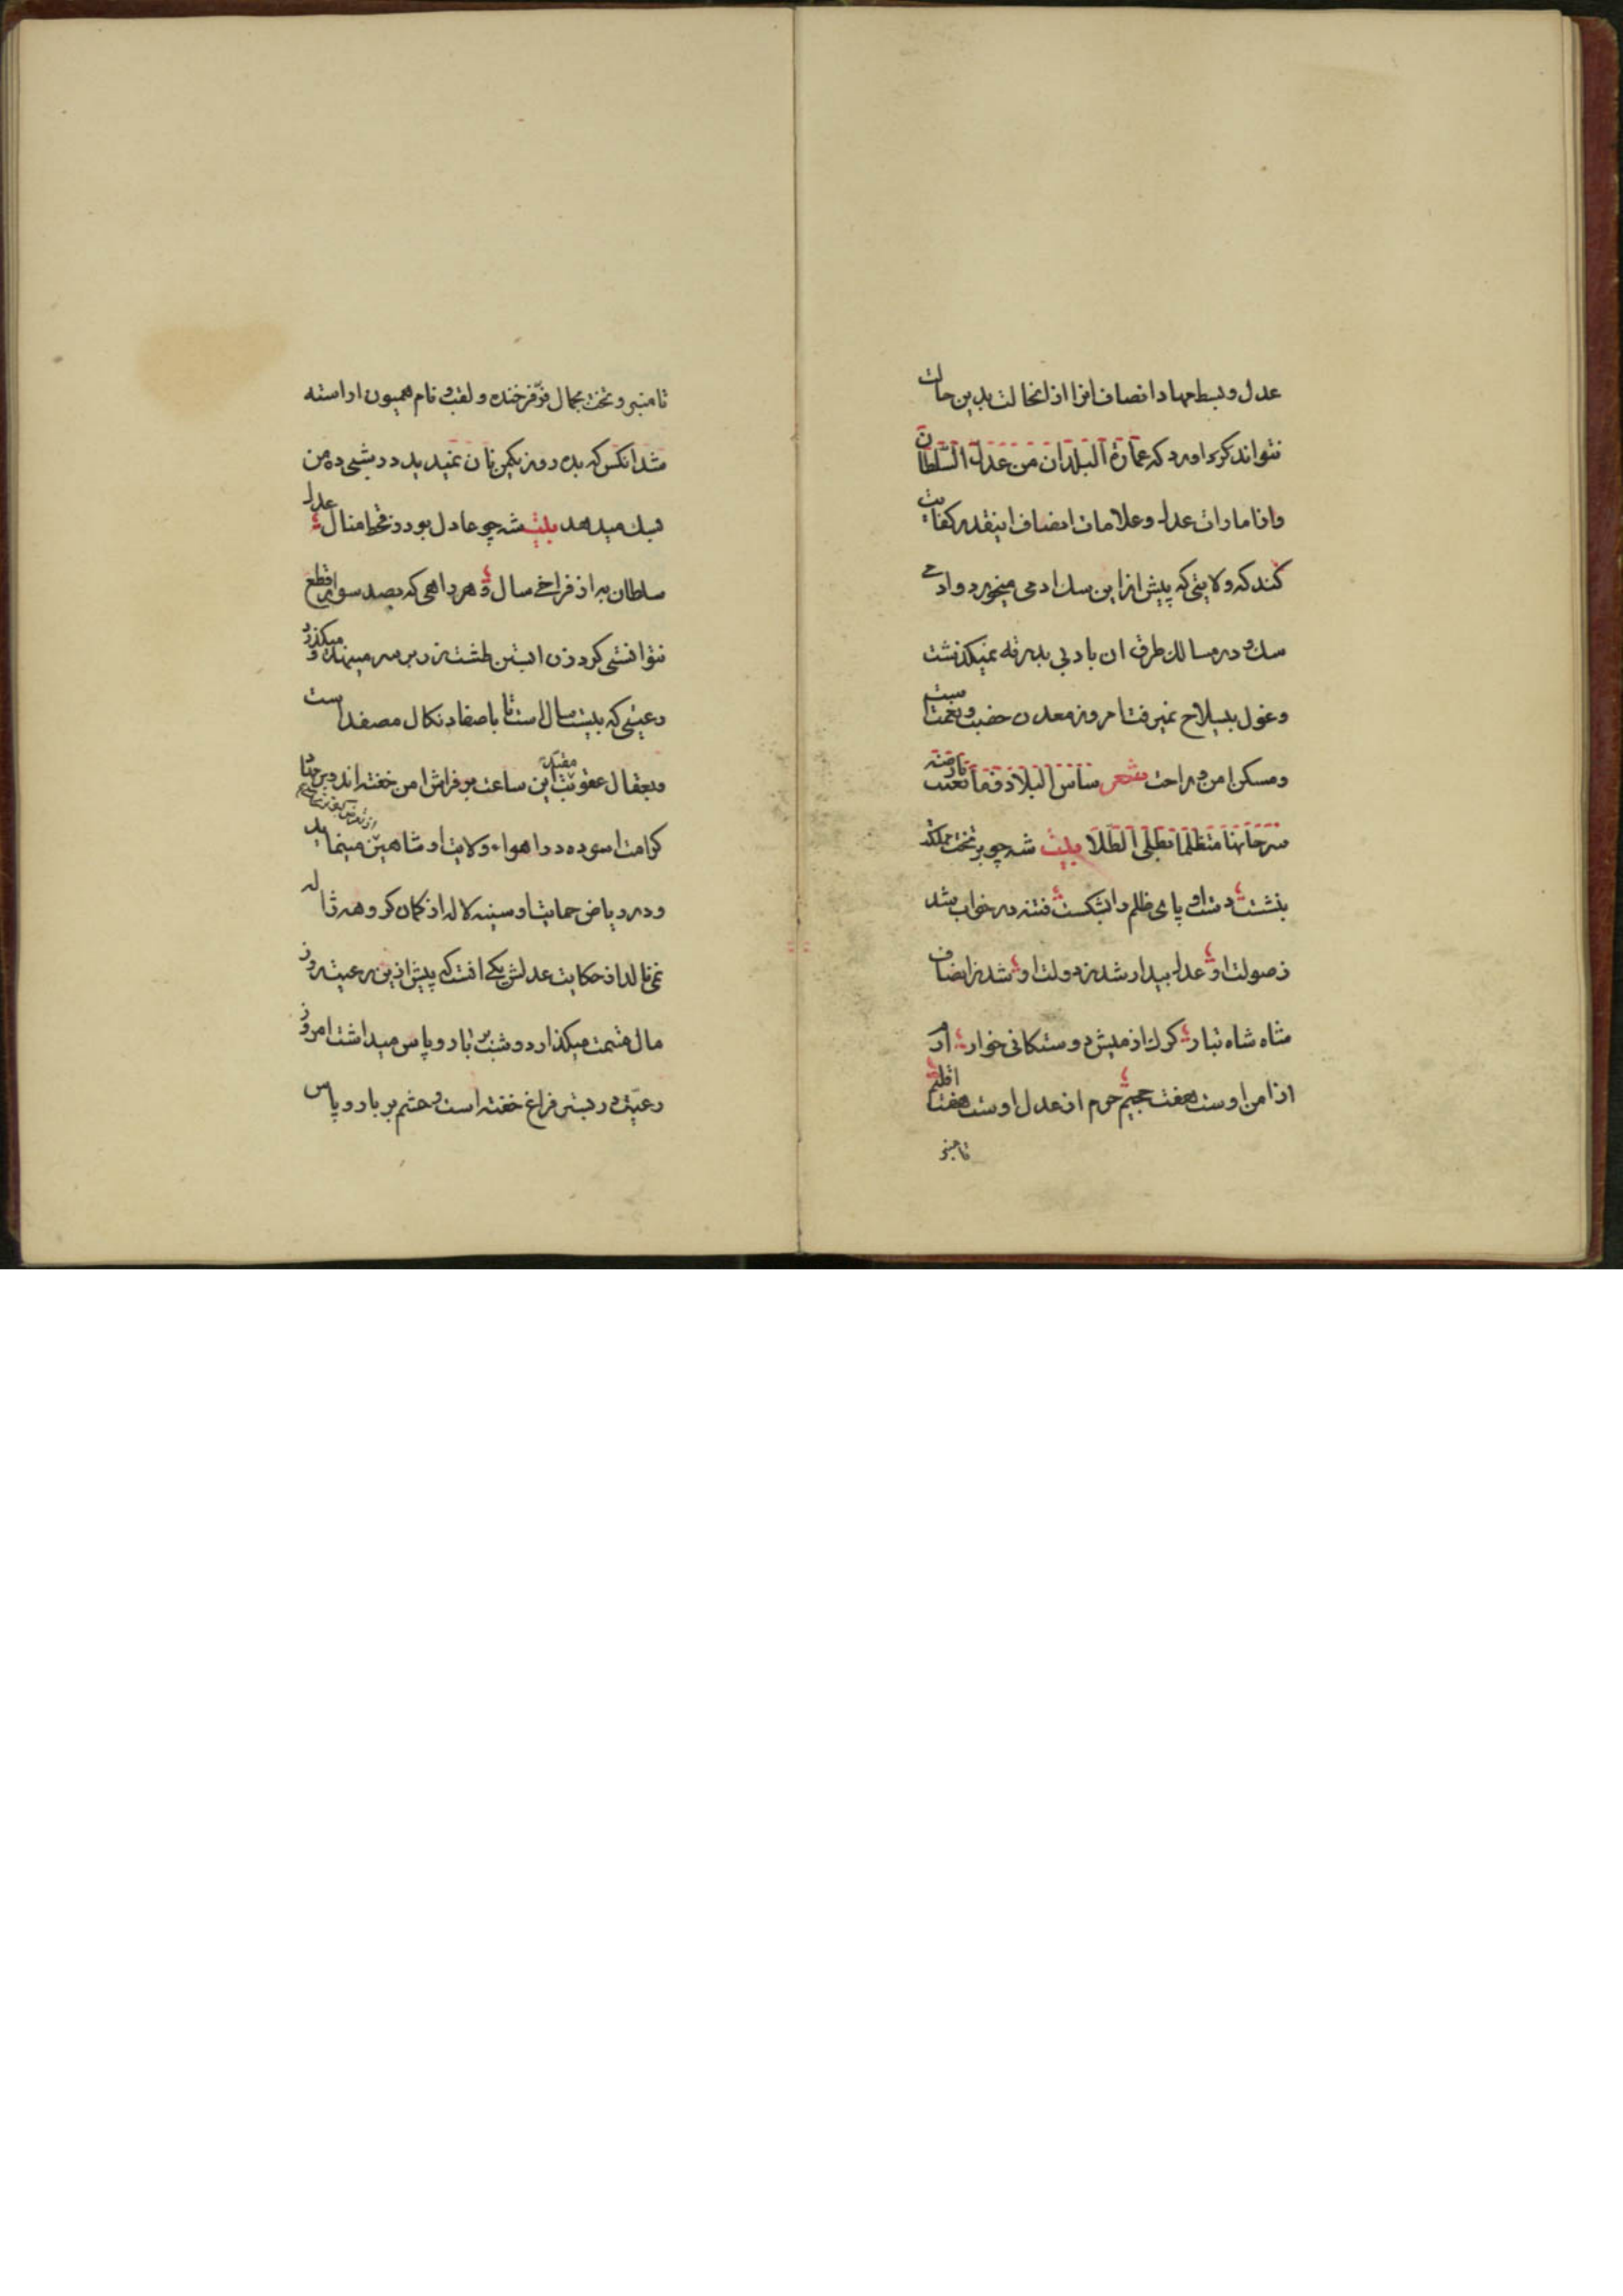 عدل و بسط مهاد انصاف انرا از انحالت بدین حالت
نتواند کرد اورد که عمارة البلدان من عدل السلطان
واز امارات عدل و علامات انصاف اینقدر کفایت
کند که ولایتی که پیش از این سک ادمی میخورد و ادمی
سک و در مسالک طرق ان باد بی بدرقه نمیکذشت
وغول بی سلاح نمیرفت امروز معدن خصب و نعمتست
ومسکن امن و راحت شعر ساس البلاد فما تعتب نارضه
سرحانها متظلما تطلی الطلا بیت شه چو بر تخت مملکت
بنشست دست او پای ظلم را بشکست فتنه در خواب شد
ز صولت او عدل بیدار شد ز دولت او شد ز انصاف
شاه شاه تبار کرک از میش دوستکانی خوار ارم
از امن اوست هفت جحیم حرم از عدل اوست هفت اقلیم
تا منبر
تا منبر و تخت بجمال فرّ فرخنده و لقب و نام همیون اراسته
شد انکس که بده روز یکمن نان نمیدید در شبی ده من
نیک میدهد بیت شه چو عادل بود ز قحط منال عدل
سلطان به از فراخی سال و هر راهی که بصد سوار قطع
نتوانستی کرد زن ابستن طشت زر بر سر مینهد و میکذرد
رعیتی که بیست سال است تا باصفاد نکال مصفد است
وبعقال عقوبت مقید این ساعت بر فراش امن خفته اند و بر جناح
کرامت اسوده و در هواء ولایت او شاهین مینماید
و در ریاض حمایت او سینه لاله از کمان کروهه ژاله
نمی نالد از حکایت عدلش یکی انست که پیش ازین رعیت روز
مال قسمت میکذارد و شب بر بار و پاس میداشت امروز
رعیّت در بستر فراغ خفته است و حشم بر بار و پاس